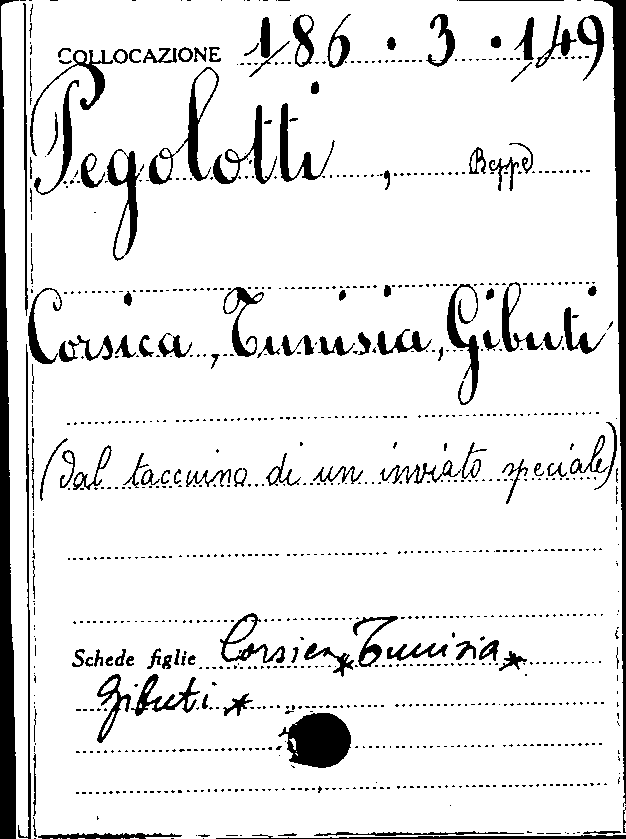 COLLOCAZIONE 186.3.149
Pegolotti, Beppe
Corsica, Tunisia, Gibuti
(Dal taccuino di un inviato speciale)
Schede figlie Corsica * Tunisia *
Gibuti *